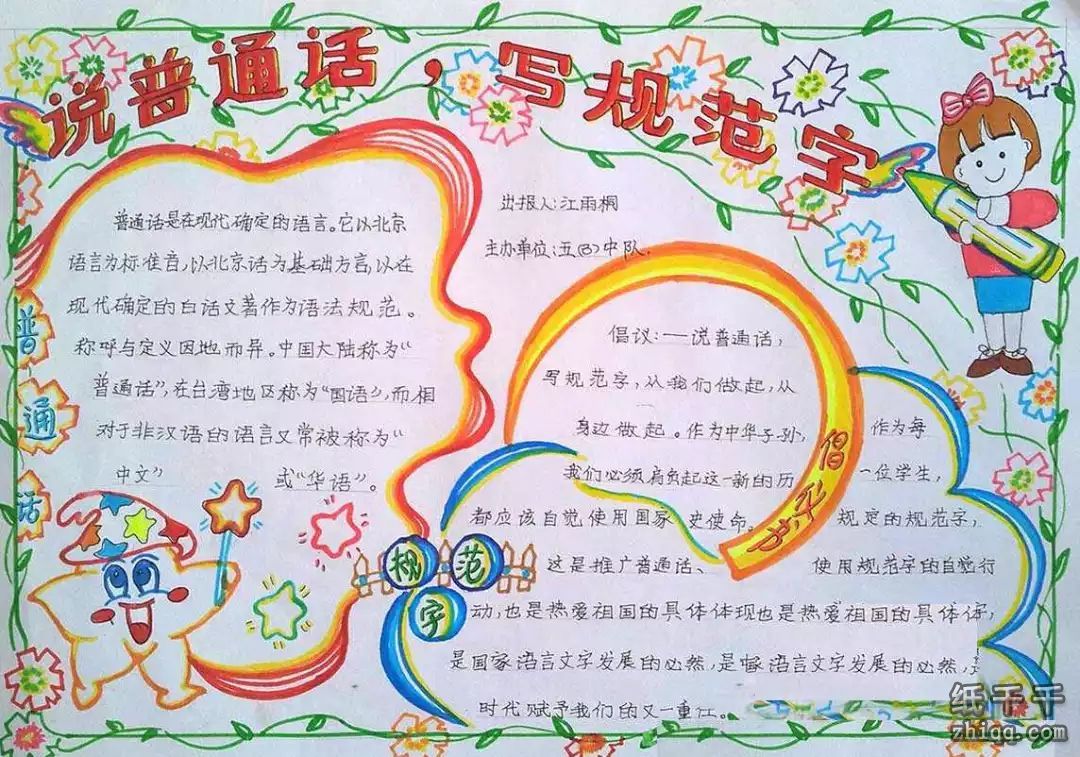 说普通话，写规范字
出报人:江雨桐
主办单位:五(3)中队.
普通话
普通话是在现代确定的语言。它以北京
语言为标准音,以北京话为基础方言,以在
现代确定的白话文著作为语法规范。
称呼与定义因地而异。中国大陆称为“
普通话”,在台湾地区称为“国语”,而相
对于非汉语的语言又常被称为“
中文” 或“华语”。
规范字
倡议:——说普通话,
写规范字,从我们做起,从
身边做起。作为中华子孙, 作为每
我们必须肩负起这一新的历 一位学生,
都应该自觉使用国家 史使命。 规定的规范字,
这是推广普通话、 使用规范字的自觉行
动,也是热爱祖国的具体体现也是热爱祖国的具体体
是国家语言文字发展的必然,是 语言文字发展的必然,
时代赋予我们的又一重任。
倡
纸千千
zhiqq.com